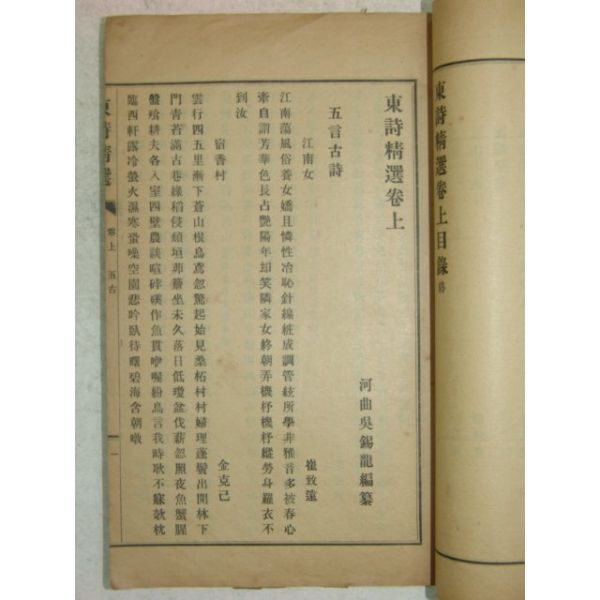 東詩精選卷上目錄終
東詩精選卷上
河曲吳錫龍編纂
五言古詩
江南女 崔致遠
江南蕩風俗養女嬌且憐性冶恥針線粧成調管絃所學非雅音多被春心
牽自謂芳華色長占艶陽年却笑隣家女終朝弄機杼機杼縱勞身羅衣不
到汝
宿香村 金克己
雲行四五里漸下蒼山根烏鳶忽驚起始見桑柘村村婦理蓬鬢出開林下
門靑苔滿古巷綠稻侵頹垣茅簷坐未久落日低瓊盆伐薪忽照夜魚蟹腥
盤飱耕夫各入室四壁農談喧磔作魚貫咿喔紛鳥言我時耿不寐欹枕
臨西軒露冷螢火濕寒蛩噪空園悲吟臥待曙碧海含朝暾
東詩精選 卷上 五古 一